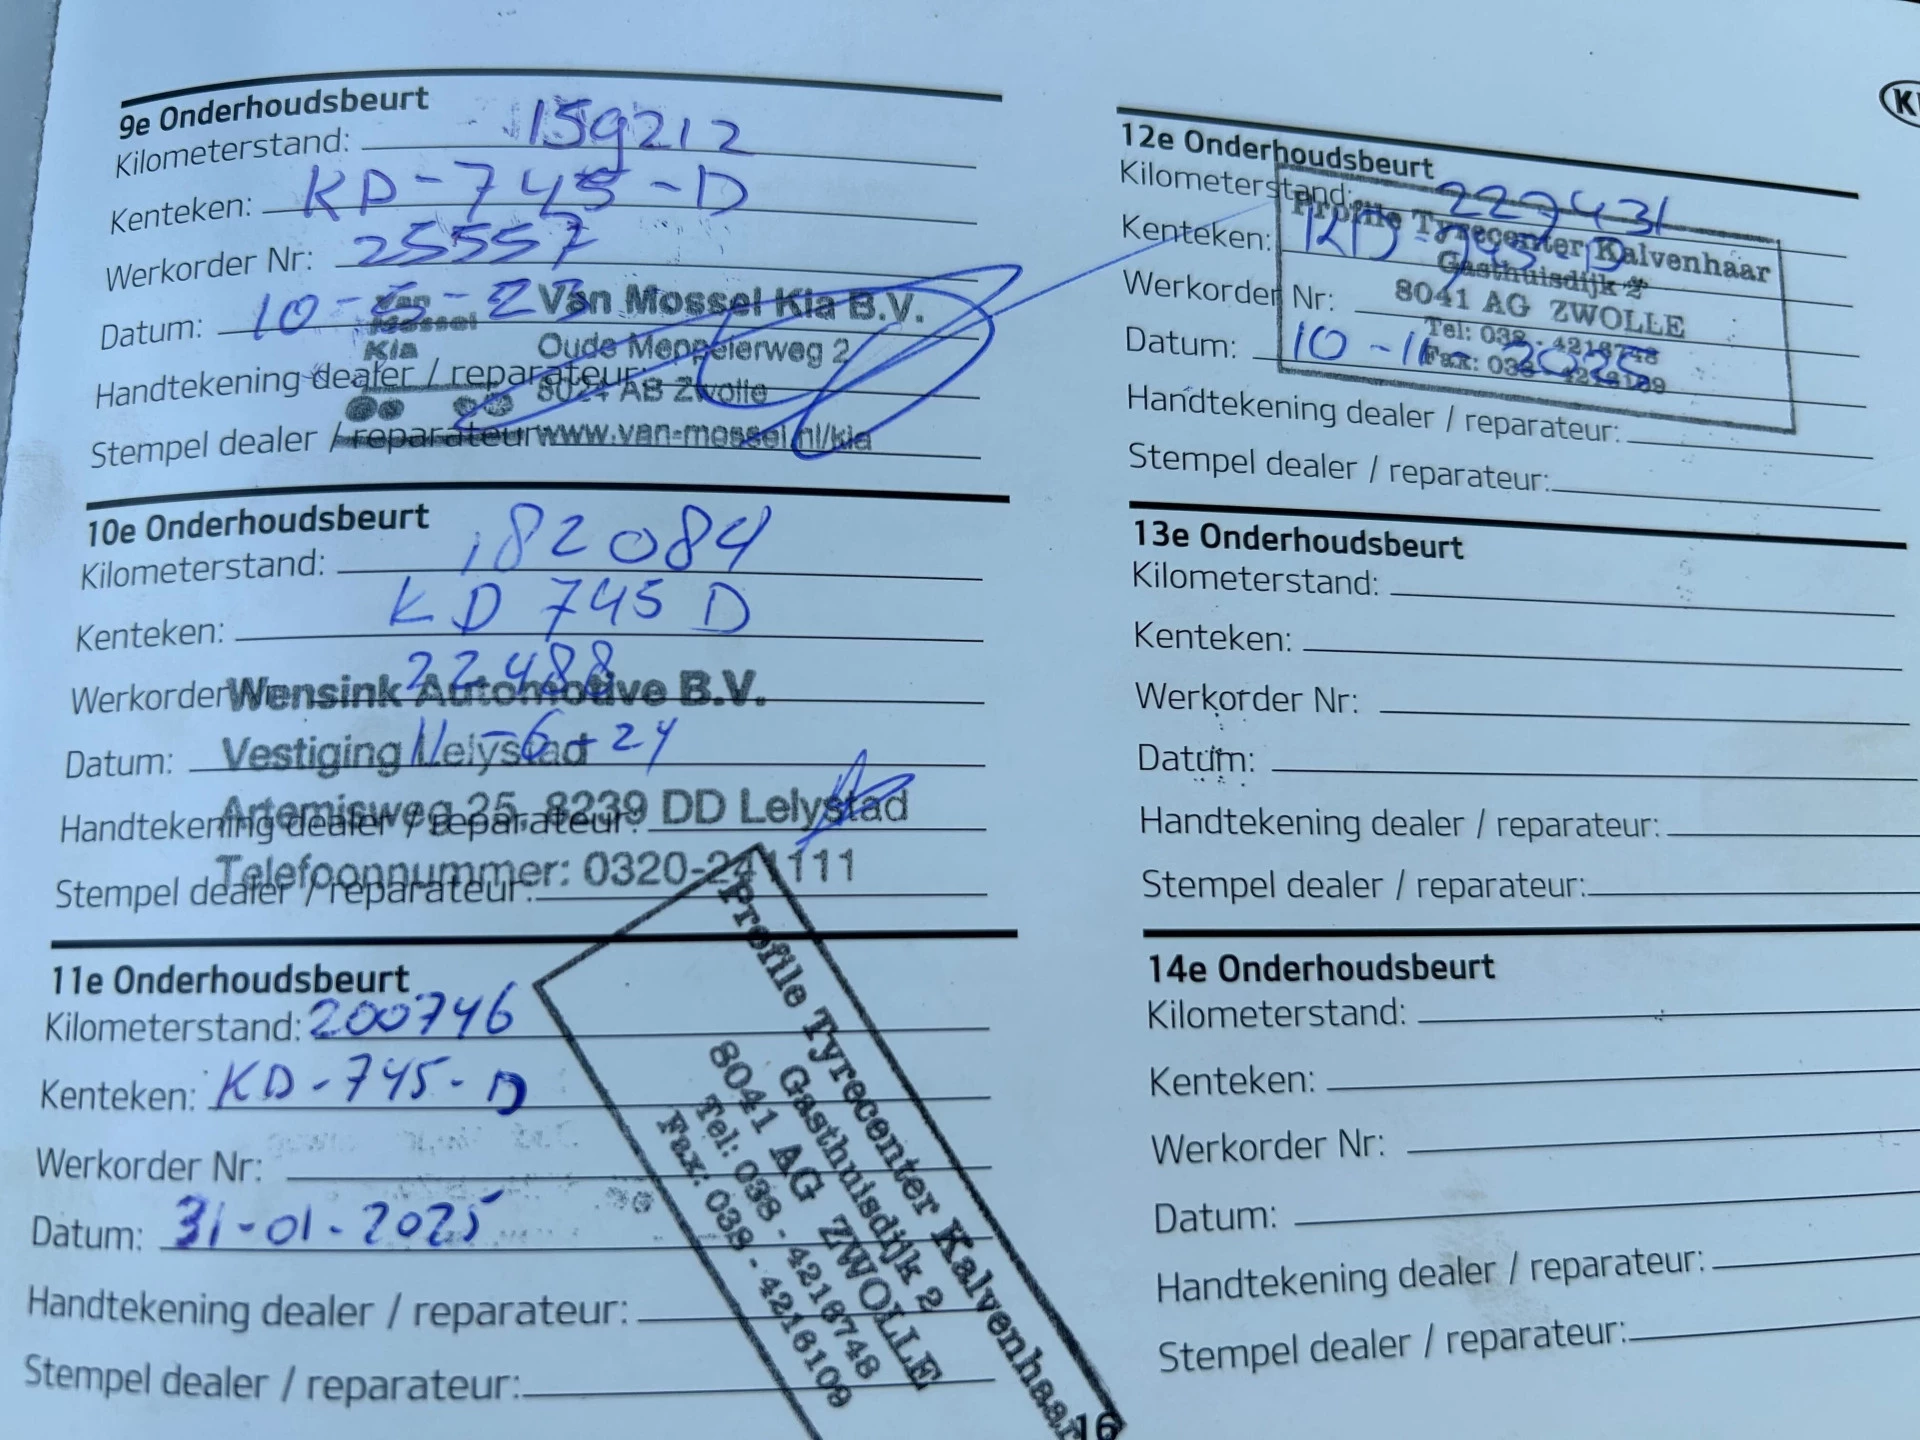 9e Onderhoudsbeurt
Kilometerstand: 159212
Kenteken: KD-745-D
Werkorder Nr: 25557
Datum: 10-5-23
Van Mossel Kia
Van Mossel Kia B.V.
Oude Meppelerweg 2
8024 AB Zwolle
www.van-mossel.nl/kia
Handtekening dealer / reparateur:
Stempel dealer / reparateur
10e Onderhoudsbeurt
Kilometerstand: 182084
Kenteken: KD 745 D
Werkorder 22488
Datum: 11-6-24
Wensink Automotive B.V.
Vestiging Lelystad
Artemisweg 25, 8239 DD Lelystad
Telefoonnummer: 0320-241111
Handtekening dealer / reparateur:
Stempel dealer / reparateur:
11e Onderhoudsbeurt
Kilometerstand: 200746
Kenteken: KD-745-D
Werkorder Nr:
Datum: 31-01-2025
Handtekening dealer / reparateur:
Stempel dealer / reparateur:
Profile Tyrecenter Kalvenhaar
Gasthuisdijk 2
8041 AG ZWOLLE
Tel: 038 - 4216748
Fax: 038 - 4216109
16
12e Onderhoudsbeurt
Kilometerstand: 227431
Kenteken: KD-745-D
Werkorder Nr:
Datum: 10-11-2025
Profile Tyrecenter Kalvenhaar
Gasthuisdijk 2
8041 AG ZWOLLE
Tel: 038 - 4216748
Fax: 038 - 4216109
Handtekening dealer / reparateur:
Stempel dealer / reparateur:
13e Onderhoudsbeurt
Kilometerstand:
Kenteken:
Werkorder Nr:
Datum:
Handtekening dealer / reparateur:
Stempel dealer / reparateur:
14e Onderhoudsbeurt
Kilometerstand:
Kenteken:
Werkorder Nr:
Datum:
Handtekening dealer / reparateur:
Stempel dealer / reparateur: